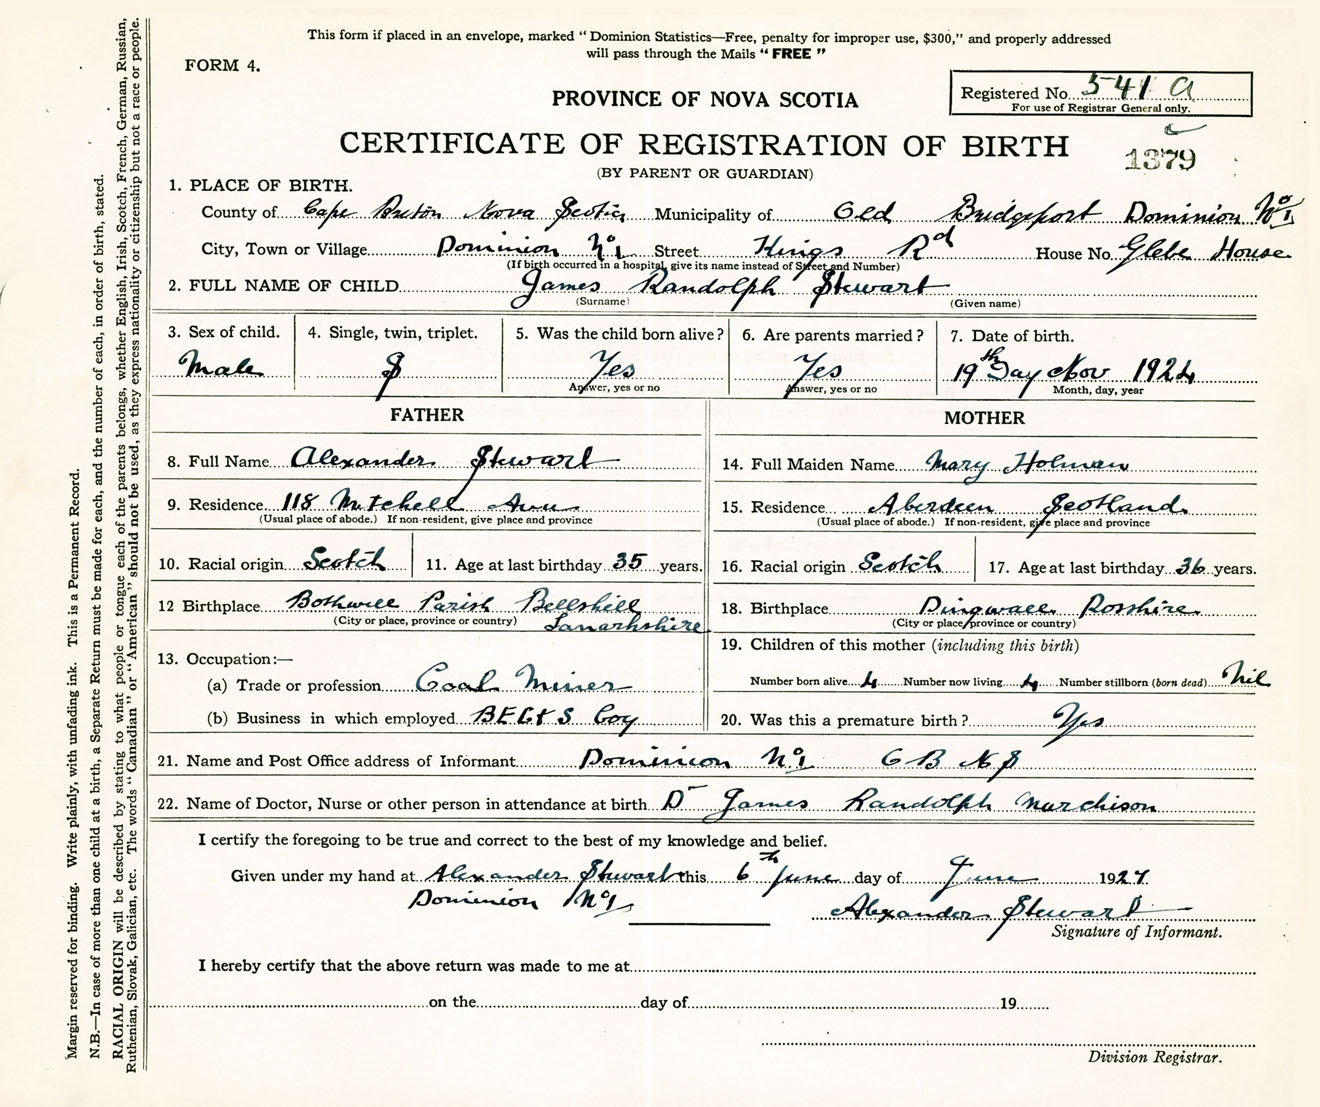 This form if placed in an envelope, marked “Dominion Statistics—Free, penalty for improper use, $300,” and properly addressed
will pass through the Mails “FREE”
FORM 4.
Registered No. 541 a
For use of Registrar General only.
PROVINCE OF NOVA SCOTIA
CERTIFICATE OF REGISTRATION OF BIRTH
1379
(BY PARENT OR GUARDIAN)
1. PLACE OF BIRTH.
County of Cape Breton Nova Scotia Municipality of Old Bridgeport Dominion No 1
City, Town or Village Dominion No 1 Street Kings Rd House No. Glebe House
(If birth occurred in a hospital, give its name instead of Street and Number)
2. FULL NAME OF CHILD James Randolph Stewart
(Surname) (Given name)
3. Sex of child. 4. Single, twin, triplet. 5. Was the child born alive? 6. Are parents married? 7. Date of birth.
Male S Yes Yes 19th Day Nov 1924
Answer, yes or no Answer, yes or no Month, day, year
FATHER MOTHER
8. Full Name Alexander Stewart
14. Full Maiden Name Mary Holman
9. Residence 118 Mitchell Ave
(Usual place of abode.) If non-resident, give place and province
15. Residence Aberdeen Scotland
(Usual place of abode.) If non-resident, give place and province
10. Racial origin Scotch 11. Age at last birthday 35 years.
16. Racial origin Scotch 17. Age at last birthday 36 years.
12 Birthplace Bothwell Parish Bellshill
(City or place, province or country) Lanarkshire
18. Birthplace Dingwall Rosshire
(City or place, province or country)
13. Occupation:—
(a) Trade or profession Coal Miner
(b) Business in which employed BE C & S Coy
19. Children of this mother (including this birth)
Number born alive 4 Number now living 4 Number stillborn (born dead) Nil
20. Was this a premature birth? Yes
21. Name and Post Office address of Informant Dominion No 1 C B N S
22. Name of Doctor, Nurse or other person in attendance at birth Dr James Randolph Murchison
I certify the foregoing to be true and correct to the best of my knowledge and belief.
Given under my hand at Alexander Stewart this 6th June day of June 1927
Dominion No 1 Alexander Stewart
Signature of Informant.
I hereby certify that the above return was made to me at
on the day of 19
Division Registrar.
Margin reserved for binding. Write plainly, with unfading ink. This is a Permanent Record.
N.B.—In case of more than one child at a birth, a Separate Return must be made for each, and the number of each, in order of birth, stated.
RACIAL ORIGIN will be described by stating to what people or tongue each of the parents belongs, whether English, Irish, Scotch, French, German, Russian,
Ruthenian, Slovak, Galician, etc. The words “Canadian” or “American” should not be used, as they express nationality or citizenship but not a race or people.